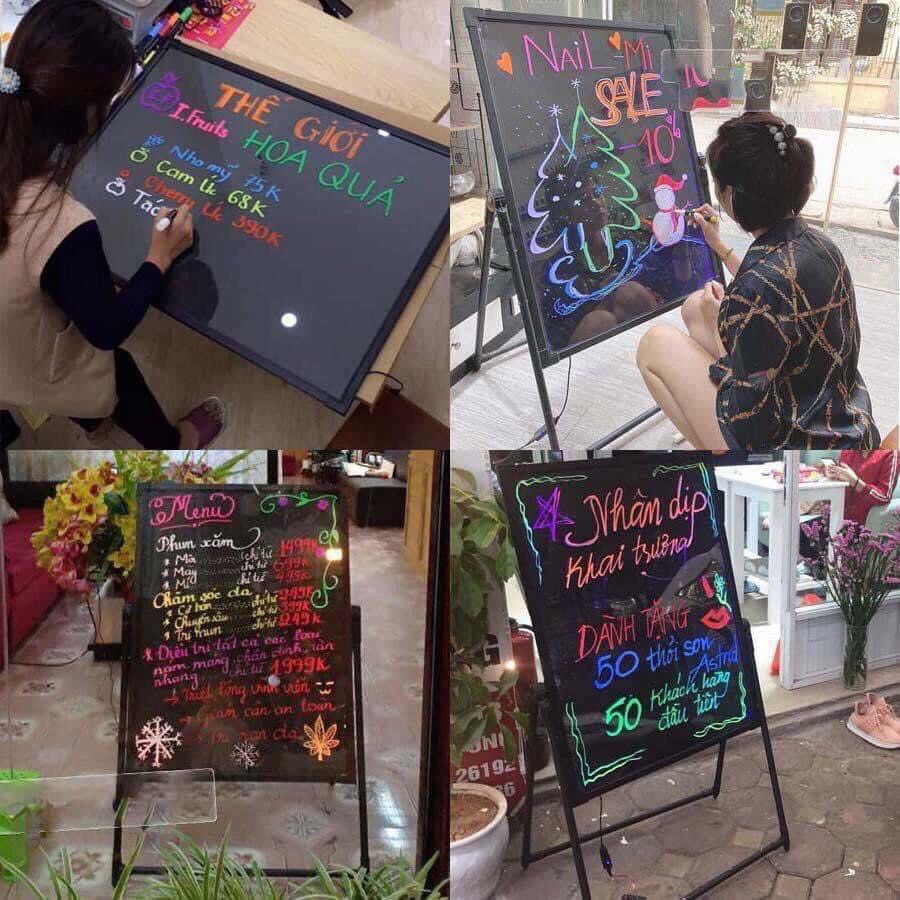 THẾ GIỚI
HOA QUẢ
I.F
I.Fruits
Nho mỹ 75K
Cam Úc 68K
Cherry Úc 390K
Táo
NAIL - Mi
SALE
-10%
Menu
Phun xăm
* Mà chỉ từ 1499K
* Mày chỉ từ 699K
* Mí chỉ từ 499K
Chăm sóc da
* Cơ bản chỉ từ 249K
* Chuyên sâu chỉ từ 399K
* Trị mụn chỉ từ 249K
Điều trị tất cả các loại
nám mảng, chân đinh, tàn
nhang chỉ từ 1999K
→ Triệt lông vĩnh viễn
→ Giảm cân an toàn
Nhân dịp
Khai trương
DÀNH TẶNG
50 thỏi son
Astrid
50 Khách hàng
đầu tiên
26192